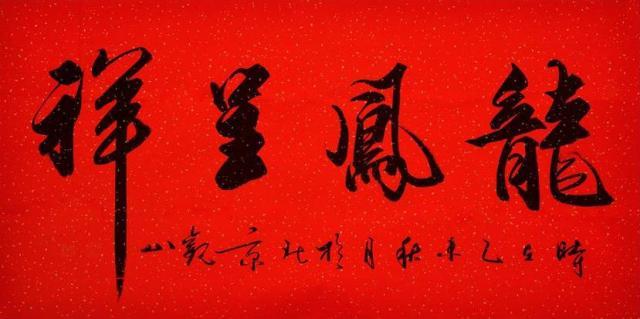 龍鳳呈祥
時在乙未秋月於北京觀山